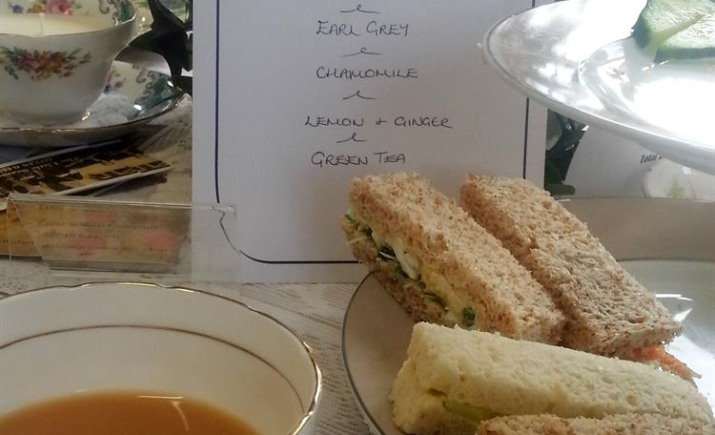 EARL GREY
CHAMOMILE
LEMON & GINGER
GREEN TEA